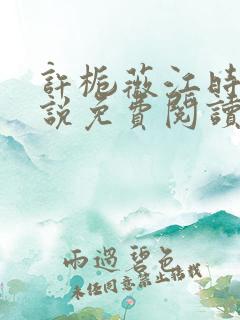 許梔薇江時
說免費閱讀
雨過碧色
未經同意禁止搭載